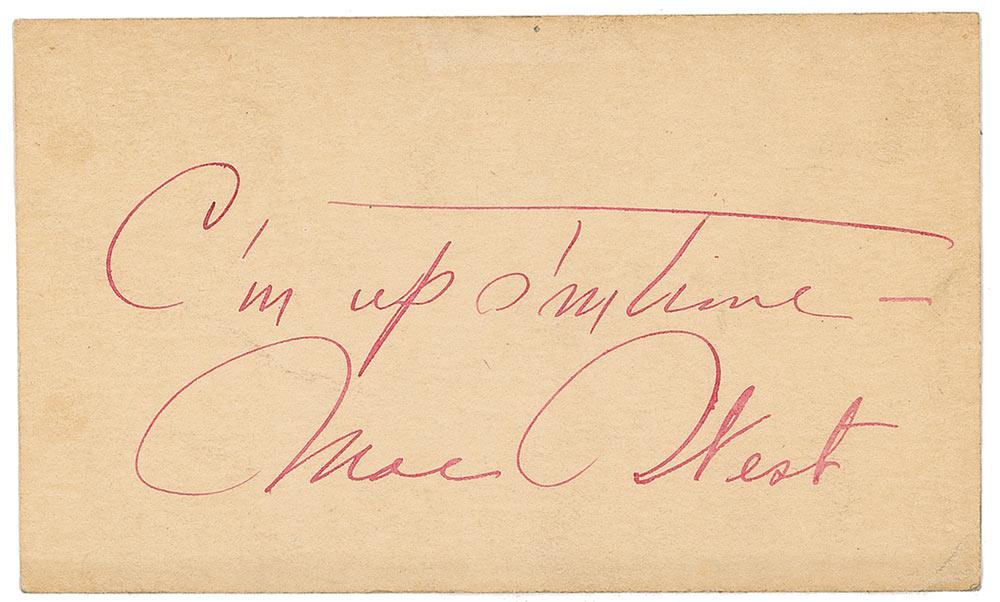 C'm up s'mtime –
Mae West